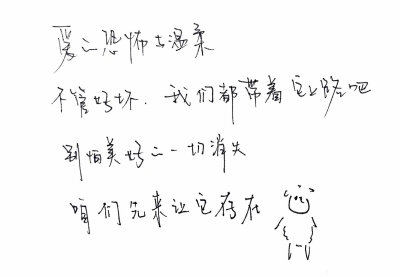 爱之恐怖与温柔
不管好坏.我们都带着它上路吧
别怕美好之一切消失
咱们先来让它存在